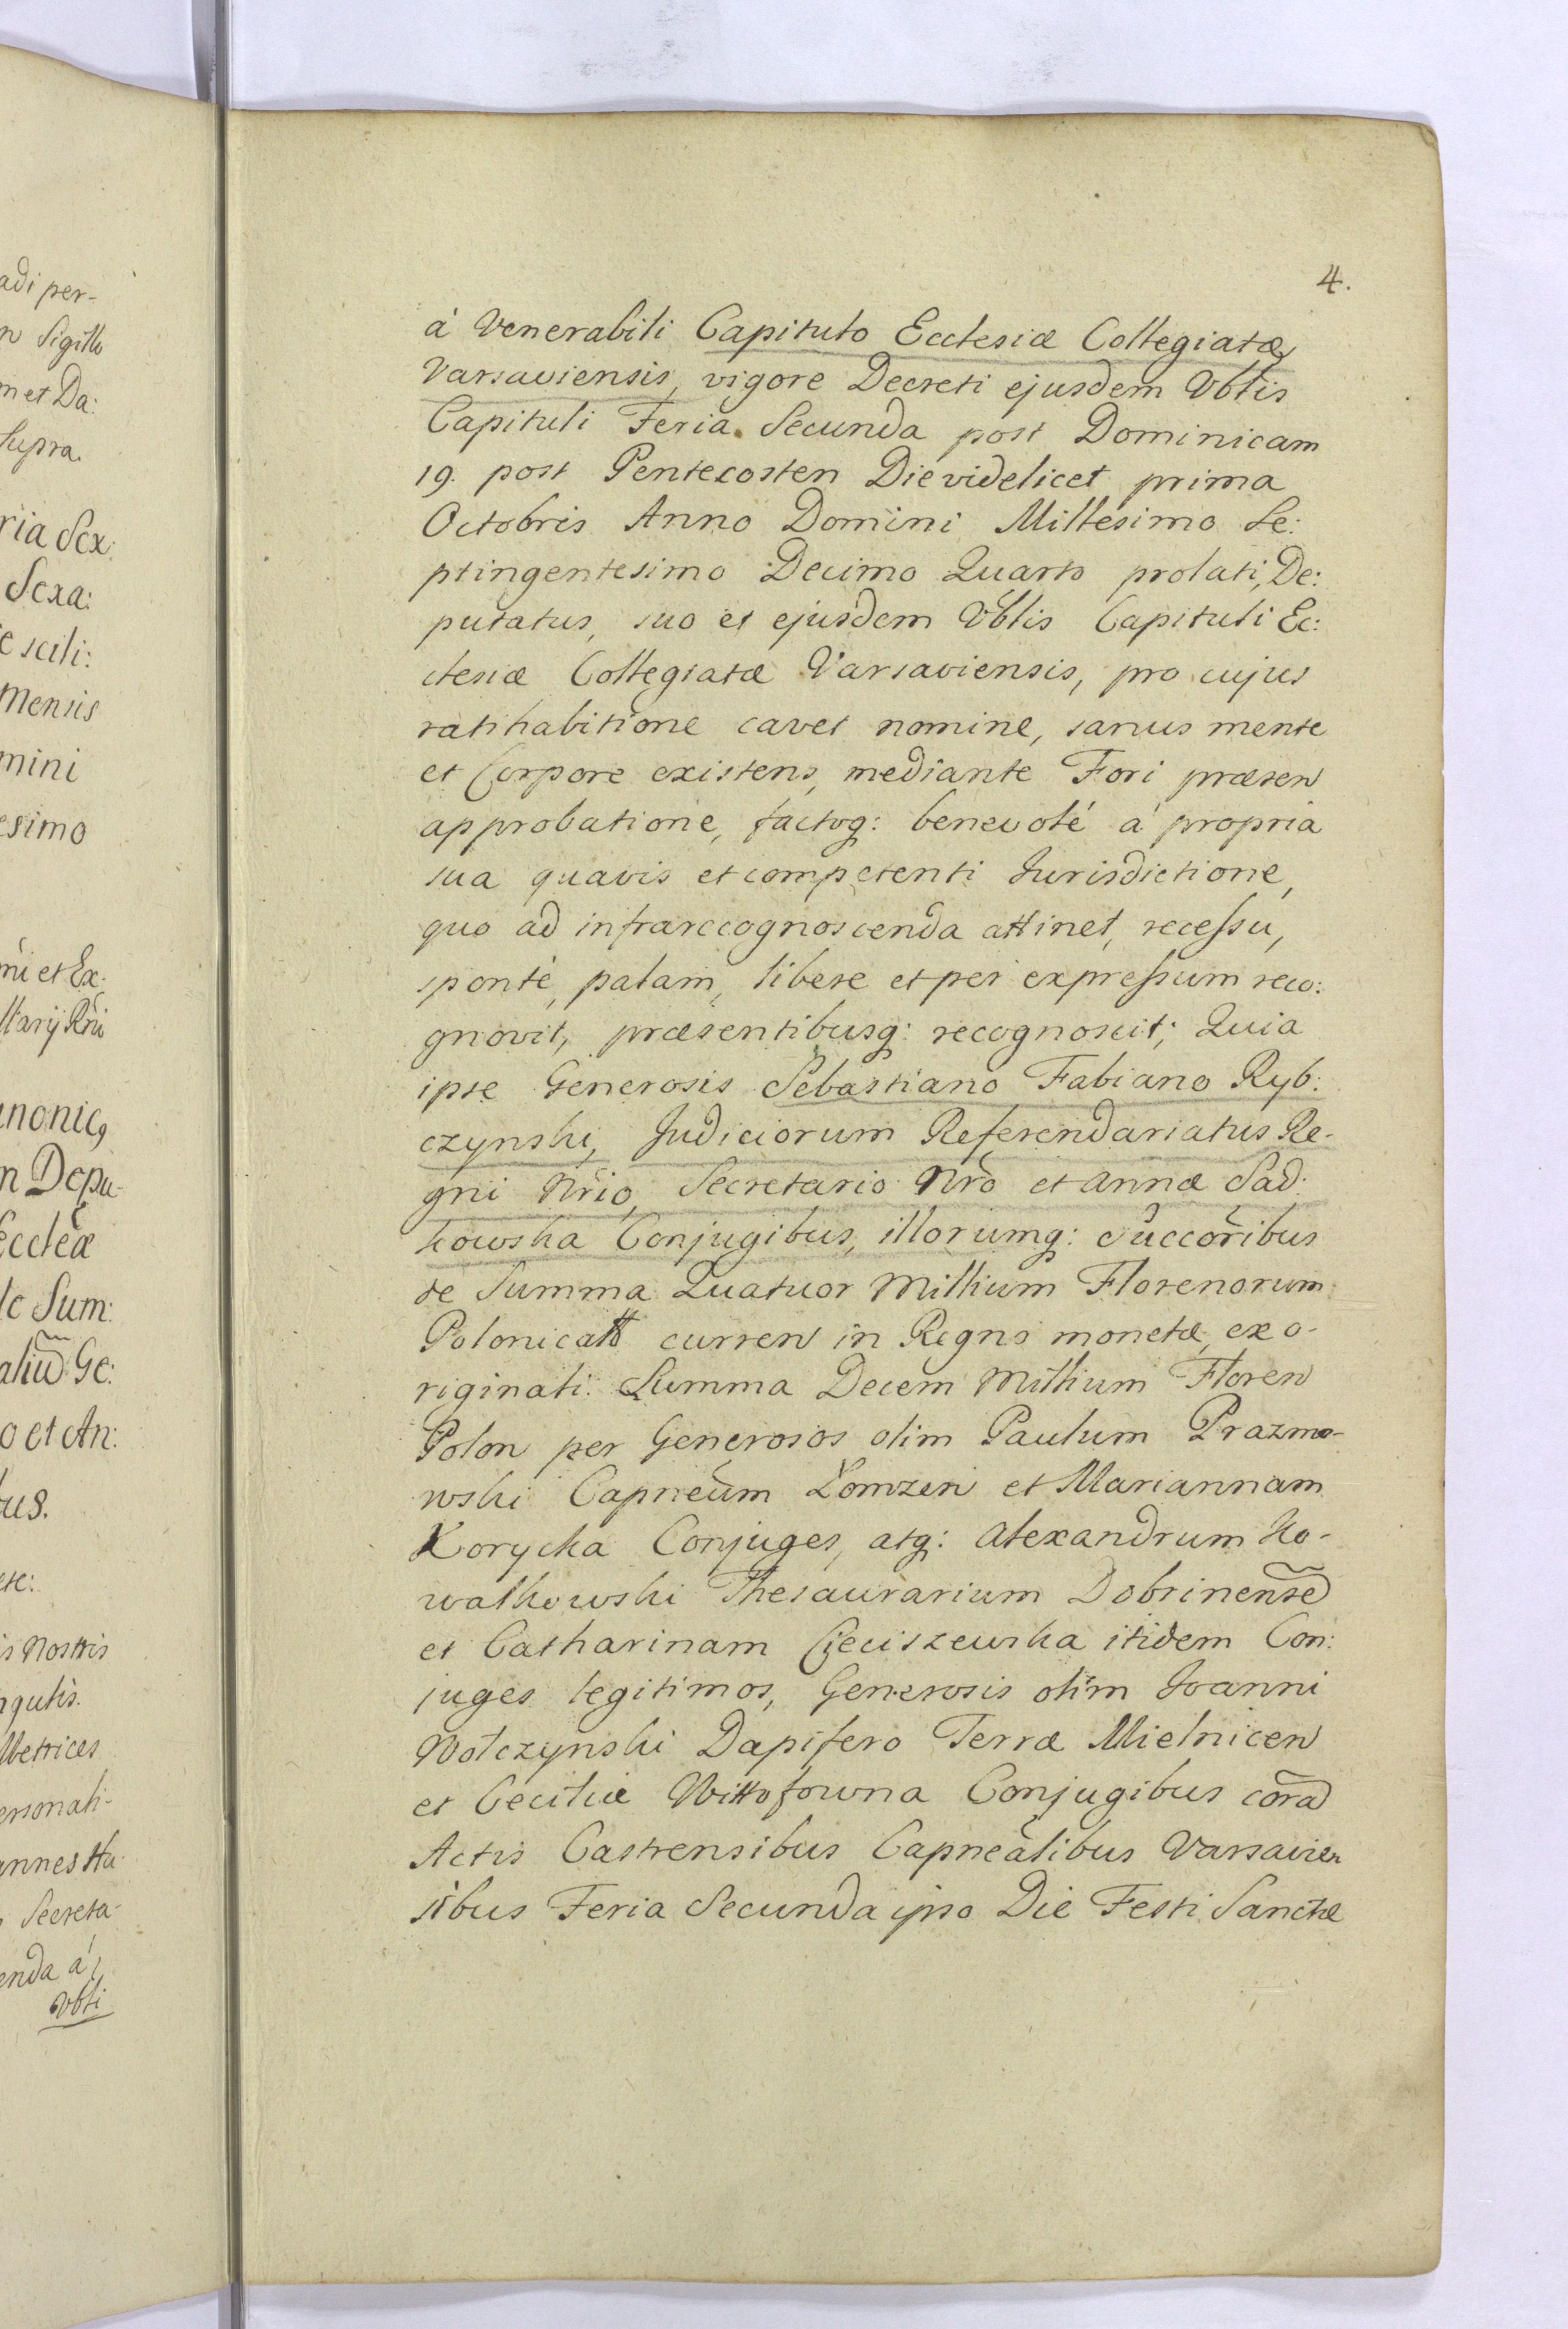 adi per-
n Sigillo
m et Da:
Supra.
ria Sex:
Sexa:
e scili:
Mensis
mini
esimo
mi et Ex:
llarij Rni
nonic,
n Depu-
Eccleæ
le Sum:
aliu Ge:
o et An:
us.
ere:
is Nostris
ngulis.
Metrices
ersonali-
annes Ha-
Secreta-
enda á
Vbli
4.
á Venerabili Capitulo Ecclesiæ Collegiatæ
Varsaviensis, vigore Decreti ejusdem Vblis
Capituli Feria Secunda post Dominicam
19. post Pentecosten Die videlicet prima
Octobris Anno Domini Millesimo Se:
ptingentesimo Decimo Quarto prolati, De:
putatus, suo et ejusdem Vblis Capituli Ec:
clesiæ Collegiatæ Varsaviensis, pro cujus
ratihabitione cavet nomine, sanus mente
et Corpore existens, mediante Fori præsen
approbatione, factoq: benevolé á propria
sua quavis et competenti Jurisdictione,
quo ad infrarecognoscenda attinet, recessu,
sponté, palam, libere et per expressum reco:
gnovit, præsentibusq: recognoscit; Quia
ipse Generosis Sebastiano Fabiano Ryb:
czynski, Judiciorum Referendariatus Re-
gni Nrio, Secretario Nro et Annæ Sad:
kowska Conjugibus, illorumq: Succoribus
de Summa Quatuor Millium Florenorum
Polonicalt curren in Regno monetæ, ex o-
riginali Summa Decem Millium Floren
Polon per Generosos olim Paulum Prazmo-
wski Capneum Łomzen et Mariannam
Korycka Conjuges, atq: Alexandrum Ko-
walkowski Thesaurarium Dobrinense
et Catharinam Cieciszewska itidem Con:
juges legitimos, Generosis olim Joanni
Wołczynski Dapifero Terræ Mielnicen
et Ceciliæ Wittofowna Conjugibus cora
Actis Castrensibus Capnealibus Varsavien
sibus Feria Secunda ipso Die Festi Sanctæ